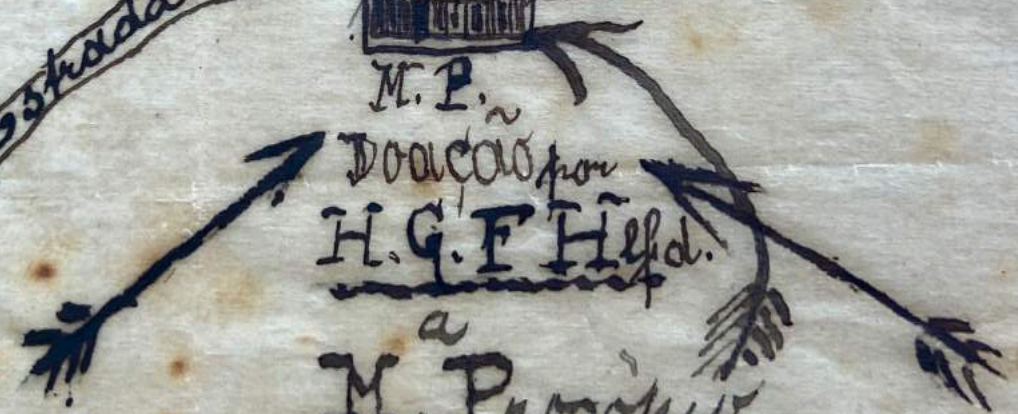 estrada
M. P.
Doação por
H. G. F Hlfd.
a
M. P